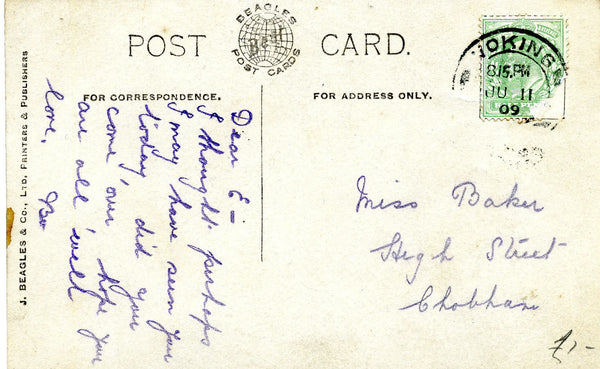 POST CARD.
BEAGLES
POST CARDS
FOR CORRESPONDENCE.
FOR ADDRESS ONLY.
J. BEAGLES & CO., LTD, PRINTERS & PUBLISHERS
WOKING
8.15 PM
JU 11
09
Dear E—
I thought perhaps
I may have seen you
today, did you
come over hope you
are all well
love,
Miss Baker
High Street
Chobham
£1-